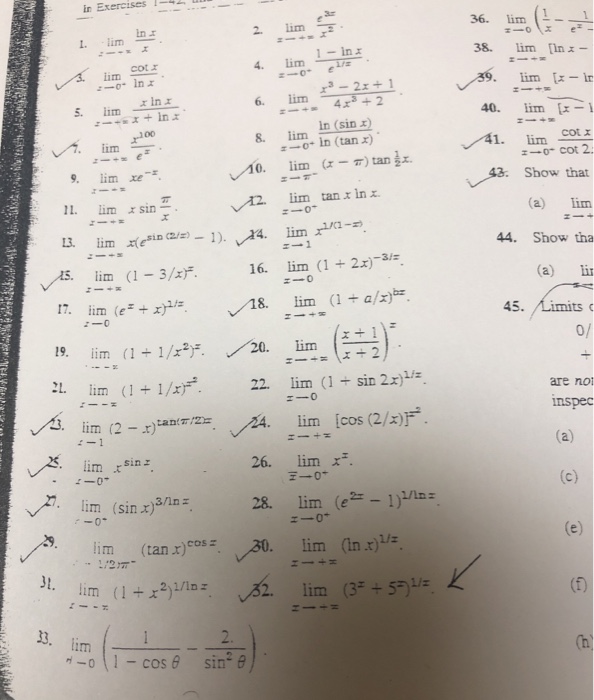 In Exercises 1–42,
1. lim ln x / x
2. lim e^{3x} / x²
3. lim x→0⁺ cot x / ln x
4. lim x→0⁺ (1 − ln x) / e^{1/x}
5. lim x→+∞ x ln x / (x + ln x)
6. lim x→+∞ (x³ − 2x + 1) / (4x³ + 2)
7. lim x→+∞ x^{100} / e^x
8. lim x→0⁺ ln (sin x) / ln (tan x)
9. lim xe^{−x}.
10. lim x→π⁻ (x − π) tan ½x.
11. lim x→+∞ x sin π/x.
12. lim x→0⁺ tan x ln x.
13. lim x→+∞ x(e^{sin (2/x)} − 1).
14. lim x→1 x^{1/(1−x)}.
15. lim x→+∞ (1 − 3/x)^x.
16. lim x→0 (1 + 2x)^{−3/x}.
17. lim x→0 (e^x + x)^{1/x}.
18. lim x→+∞ (1 + a/x)^{bx}.
19. lim (1 + 1/x²)^x.
20. lim x→+∞ ((x + 1)/(x + 2))^x
21. lim (1 + 1/x)^{x²}.
22. lim x→0 (1 + sin 2x)^{1/x}.
23. lim x→1 (2 − x)^{tan(π/2)x}.
24. lim x→+∞ [cos (2/x)]^{x²}.
25. lim x→0⁺ x^{sin x}.
26. lim x→0⁺ x^x.
27. lim x→0⁺ (sin x)^{3/ln x}.
28. lim x→0⁺ (e^{2x} − 1)^{1/ln x}.
29. lim x→1/2π⁻ (tan x)^{cos x}.
30. lim x→+∞ (ln x)^{1/x}.
31. lim (1 + x²)^{1/ln x}.
32. lim x→+∞ (3^x + 5^x)^{1/x}.
33. lim θ→0 (1/(1 − cos θ) − 2/sin² θ).
36. lim x→0 (1/x − 1/
38. lim x→+∞ [ln x −
39. lim x→+∞ [x − ln
40. lim x→+∞ [x −
41. lim x→0⁺ cot x / cot 2
43. Show that
(a) lim
44. Show tha
(a) lim
45. Limits o
0/
+
are not
inspec
(a)
(c)
(e)
(f)
(h)